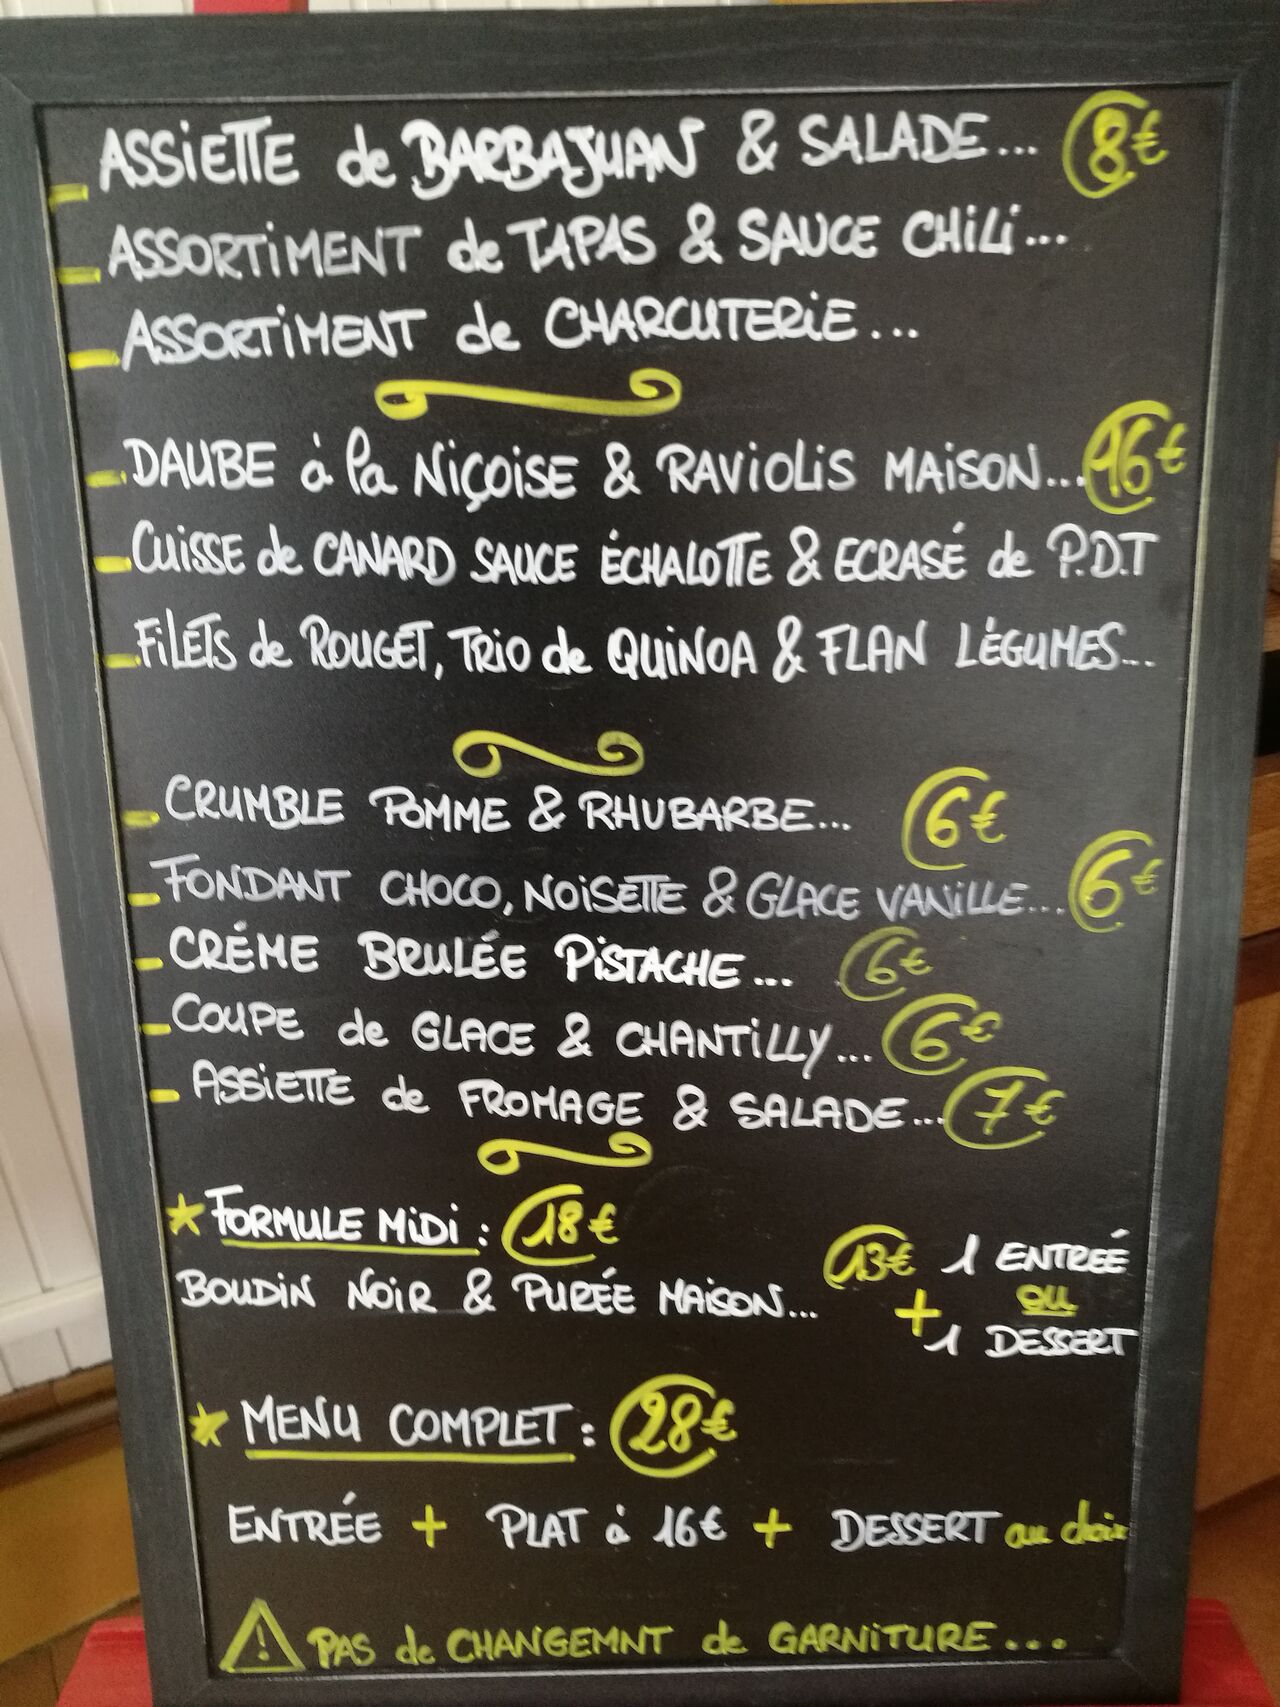 ASSIETTE de BARBAJUAN & SALADE... 8€
ASSORTIMENT de TAPAS & SAUCE CHILI...
ASSORTIMENT de CHARCUTERIE...
DAUBE à la NIÇOISE & RAVIOLIS MAISON... 16€
CUISSE de CANARD SAUCE ÉCHALOTTE & ECRASÉ de P.D.T
FILETS de ROUGET, TRIO de QUINOA & FLAN LÉGUMES...
CRUMBLE POMME & RHUBARBE... 6€
FONDANT CHOCO, NOISETTE & GLACE VANILLE... 6€
CRÉME BRULÉE PISTACHE... 6€
COUPE de GLACE & CHANTILLY... 6€
ASSIETTE de FROMAGE & SALADE... 7€
FORMULE MIDI : 18€
BOUDIN NOIR & PURÉE MAISON... 13€ + 1 ENTREÉ
ou
1 DESSERT
MENU COMPLET : 28€
ENTRÉE + PLAT à 16€ + DESSERT au choix
! PAS de CHANGEMNT de GARNITURE...